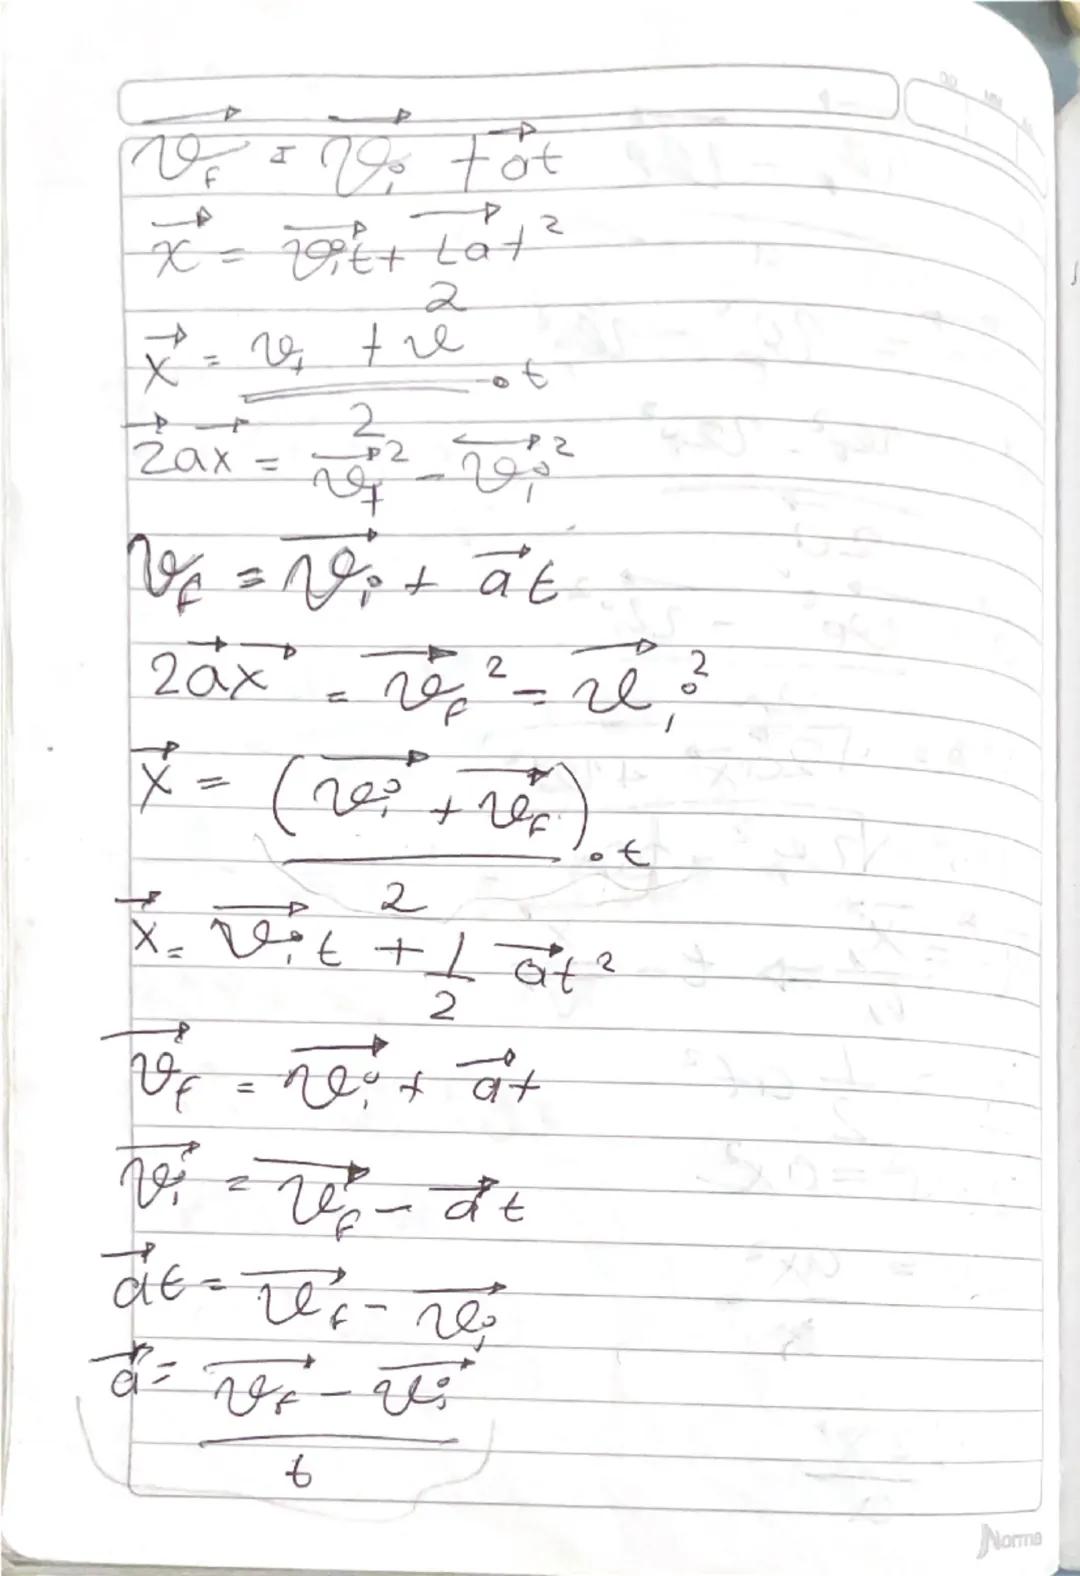 v⃗_f = v⃗_i + a⃗t
x⃗ = v⃗_i t + 1/2 a⃗t²
x⃗ = (v_i + v)/2 · t
2a⃗x⃗ = v⃗_f² - v⃗_i²
v_f = v⃗_i + a⃗t
2a⃗x⃗ = v⃗_f² - v⃗_i²
x⃗ = (v⃗_i + v⃗_f)/2 · t
x⃗ = v⃗_i t + 1/2 a⃗t²
v⃗_f = v⃗_i + a⃗t
v⃗_i = v⃗_f - a⃗t
a⃗t = v⃗_f - v⃗_i
a⃗ = (v⃗_f - v⃗_i)/t
Norma